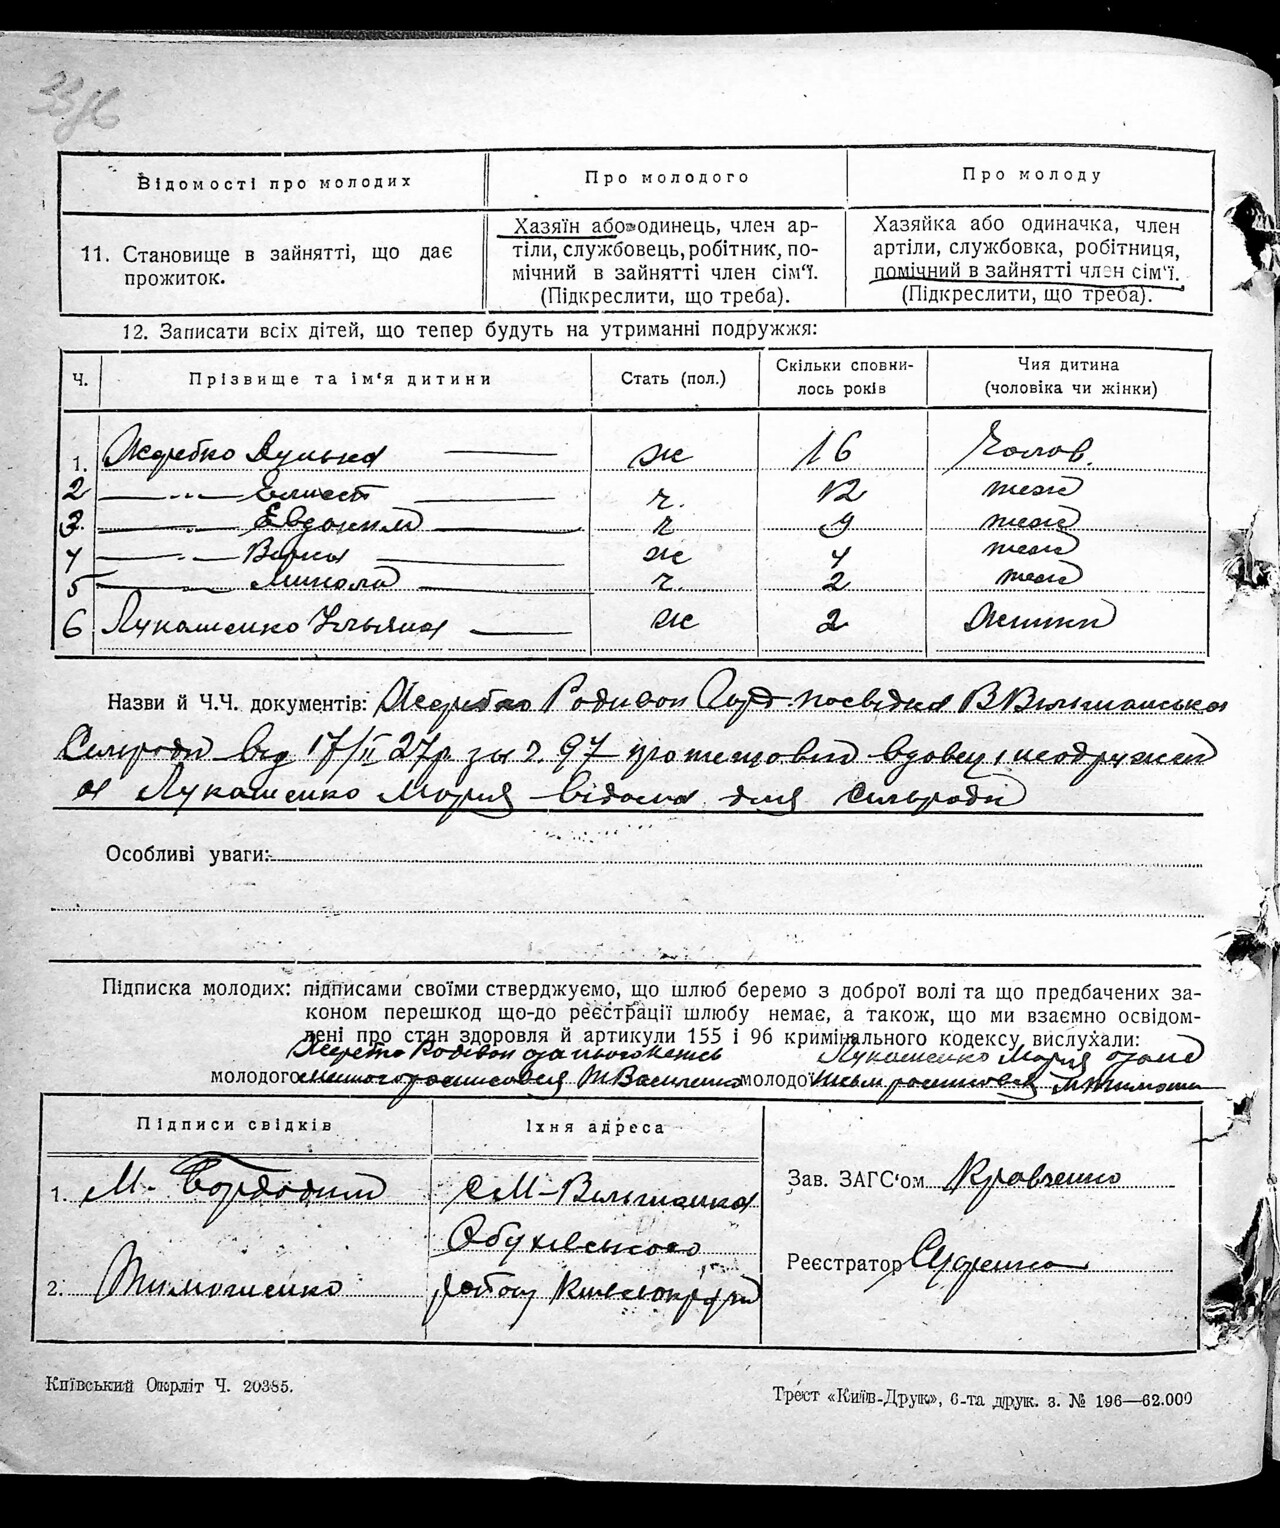 Відомості про молодих
Про молодого
Про молоду
11. Становище в зайнятті, що дає
прожиток.
Хазяїн або одинець, член ар-
тіли, службовець, робітник, по-
мічний в зайнятті член сім'ї.
(Підкреслити, що треба).
Хазяйка або одиначка, член
артіли, службовка, робітниця,
помічний в зайнятті член сім'ї.
(Підкреслити, що треба).
12. Записати всіх дітей, що тепер будуть на утриманні подружжя:
Ч. Прізвище та ім'я дитини Стать (пол.) Скільки сповни-
лось років Чия дитина
(чоловіка чи жінки)
1. Жеребко ж 16 Чолов.
2 —〃— ч. 12 теж
3. —〃— Евдоким ч 9 теж
4 —〃— ж 4 теж
5 —〃— Микола ч. 2 теж
6 Лукашенко Ульяна ж 2 Жинки
Назви й Ч.Ч. документів: Жеребко Родивон посвідка В Вільшанська
Сельради від 17/II 27р. за ч. 97 вдовец
а Лукашенко Мария відома для Сельради
Особливі уваги:
Підписка молодих: підписами своїми стверджуємо, що шлюб беремо з доброї волі та що предбачених за-
коном перешкод що-до реєстрації шлюбу немає, а також, що ми взаємно освідом-
лені про стан здоровля й артикули 155 і 96 кримінального кодексу вислухали:
Жеребко Родівон Лукашенко Мария
молодого росписовся Василенко молодої росписовся
Підписи свідків
Їхня адреса
1. М.
С М-Вільшанка
Обухівського
2. Тимошенко
Зав. ЗАГС'ом Кравченко
Реєстратор
Київський Окрліт Ч. 20385.
Трест «Київ-Друк», 6-та друк. з. № 196—62.000